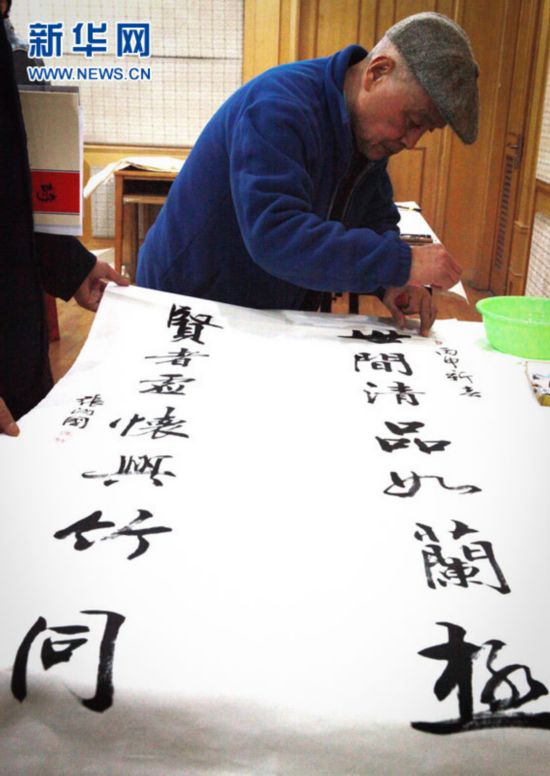 新华网
WWW.NEWS.CN
丙申新
世間清品如蘭極
賢者虛懷與竹同